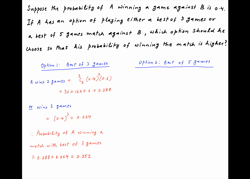 Suppose the probability of A winning a game against B is 0.4.
If A has an option of playing either a best of 3 games or
a best of 5 games match against B, which option should he
choose so that his probability of winning the match is higher?
Option 1: Best of 3 games
Option 2: Best of 5 games
A wins 2 games =
= 0.288
A wins 3 games
= 0.064
∴ Probability of A winning a
match with best of 3 games
= 0.288 + 0.064 = 0.352